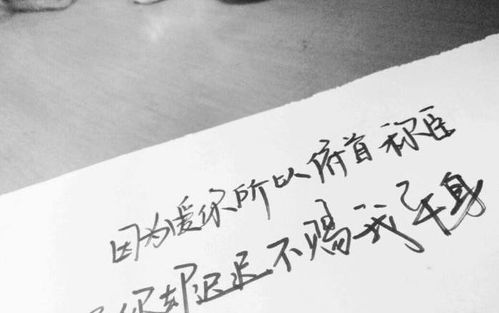 因为爱你所以俯首称臣
你却迟迟不赐我平身